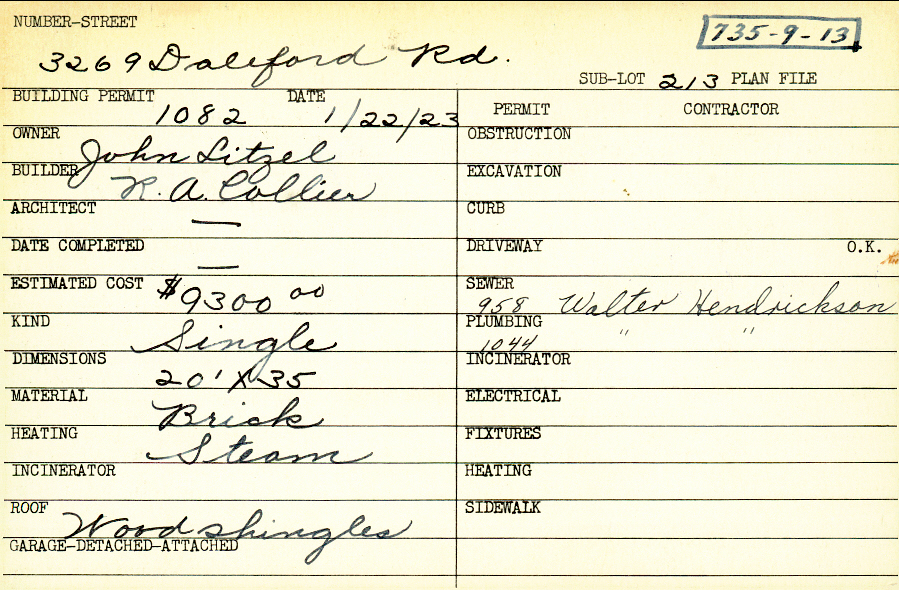 NUMBER-STREET
735-9-13
3269 Daleford Rd.
SUB-LOT 213 PLAN FILE
BUILDING PERMIT 1082 DATE 1/22/23
OWNER John Litzel
BUILDER R. A. Collier
ARCHITECT —
DATE COMPLETED —
ESTIMATED COST $9300 00
KIND Single
DIMENSIONS 20' X 35
MATERIAL Brick
HEATING Steam
INCINERATOR
ROOF Wood shingles
GARAGE-DETACHED-ATTACHED
PERMIT CONTRACTOR
OBSTRUCTION
EXCAVATION
CURB
DRIVEWAY O.K.
SEWER 958 Walter Hendrickson
PLUMBING 1044 " "
INCINERATOR
ELECTRICAL
FIXTURES
HEATING
SIDEWALK